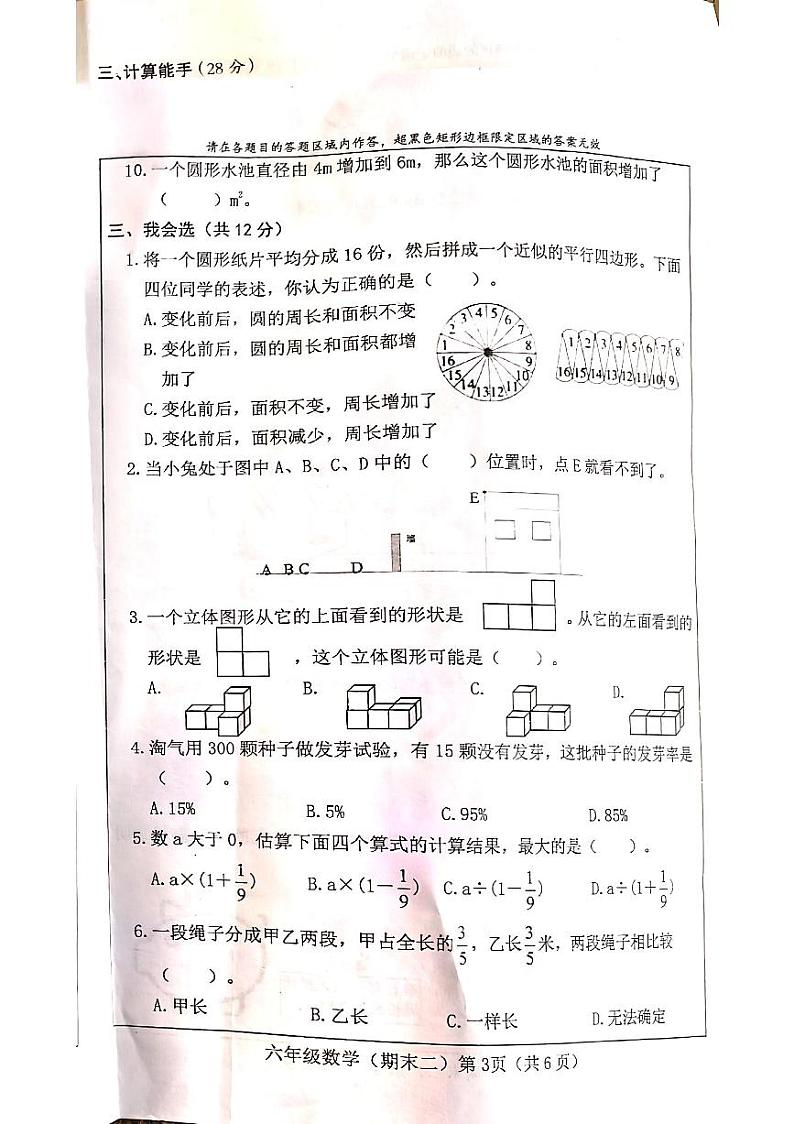 三、计算能手(28分)
请在各题目的答题区域内作答，超黑色矩形边框限定区域的答案无效
10.一个圆形水池直径由4m增加到6m，那么这个圆形水池的面积增加了
（　　）m²。
三、我会选（共12分）
1.将一个圆形纸片平均分成16份，然后拼成一个近似的平行四边形。下面
四位同学的表述，你认为正确的是（　　）。
A.变化前后，圆的周长和面积不变
B.变化前后，圆的周长和面积都增
加了
C.变化前后，面积不变，周长增加了
D.变化前后，面积减少，周长增加了
1 2 3 4 5 6 7 8 9 10 11 12 13 14 15 16
1 2 3 4 5 6 7 8
16 15 14 13 12 11 10 9
2.当小兔处于图中A、B、C、D中的（　　）位置时，点E就看不到了。
E
墙
A B C D
3.一个立体图形从它的上面看到的形状是　　。从它的左面看到的
形状是　　，这个立体图形可能是（　　）。
A. B. C. D.
4.淘气用300颗种子做发芽试验，有15颗没有发芽，这批种子的发芽率是
（　　）。
A.15% B.5% C.95% D.85%
5.数a大于0，估算下面四个算式的计算结果，最大的是（　　）。
A.a×(1+1/9) B.a×(1－1/9) C.a÷(1－1/9) D.a÷(1+1/9)
6.一段绳子分成甲乙两段，甲占全长的3/5，乙长3/5米，两段绳子相比较
（　　）。
A.甲长 B.乙长 C.一样长 D.无法确定
六年级数学（期末二）第3页（共6页）